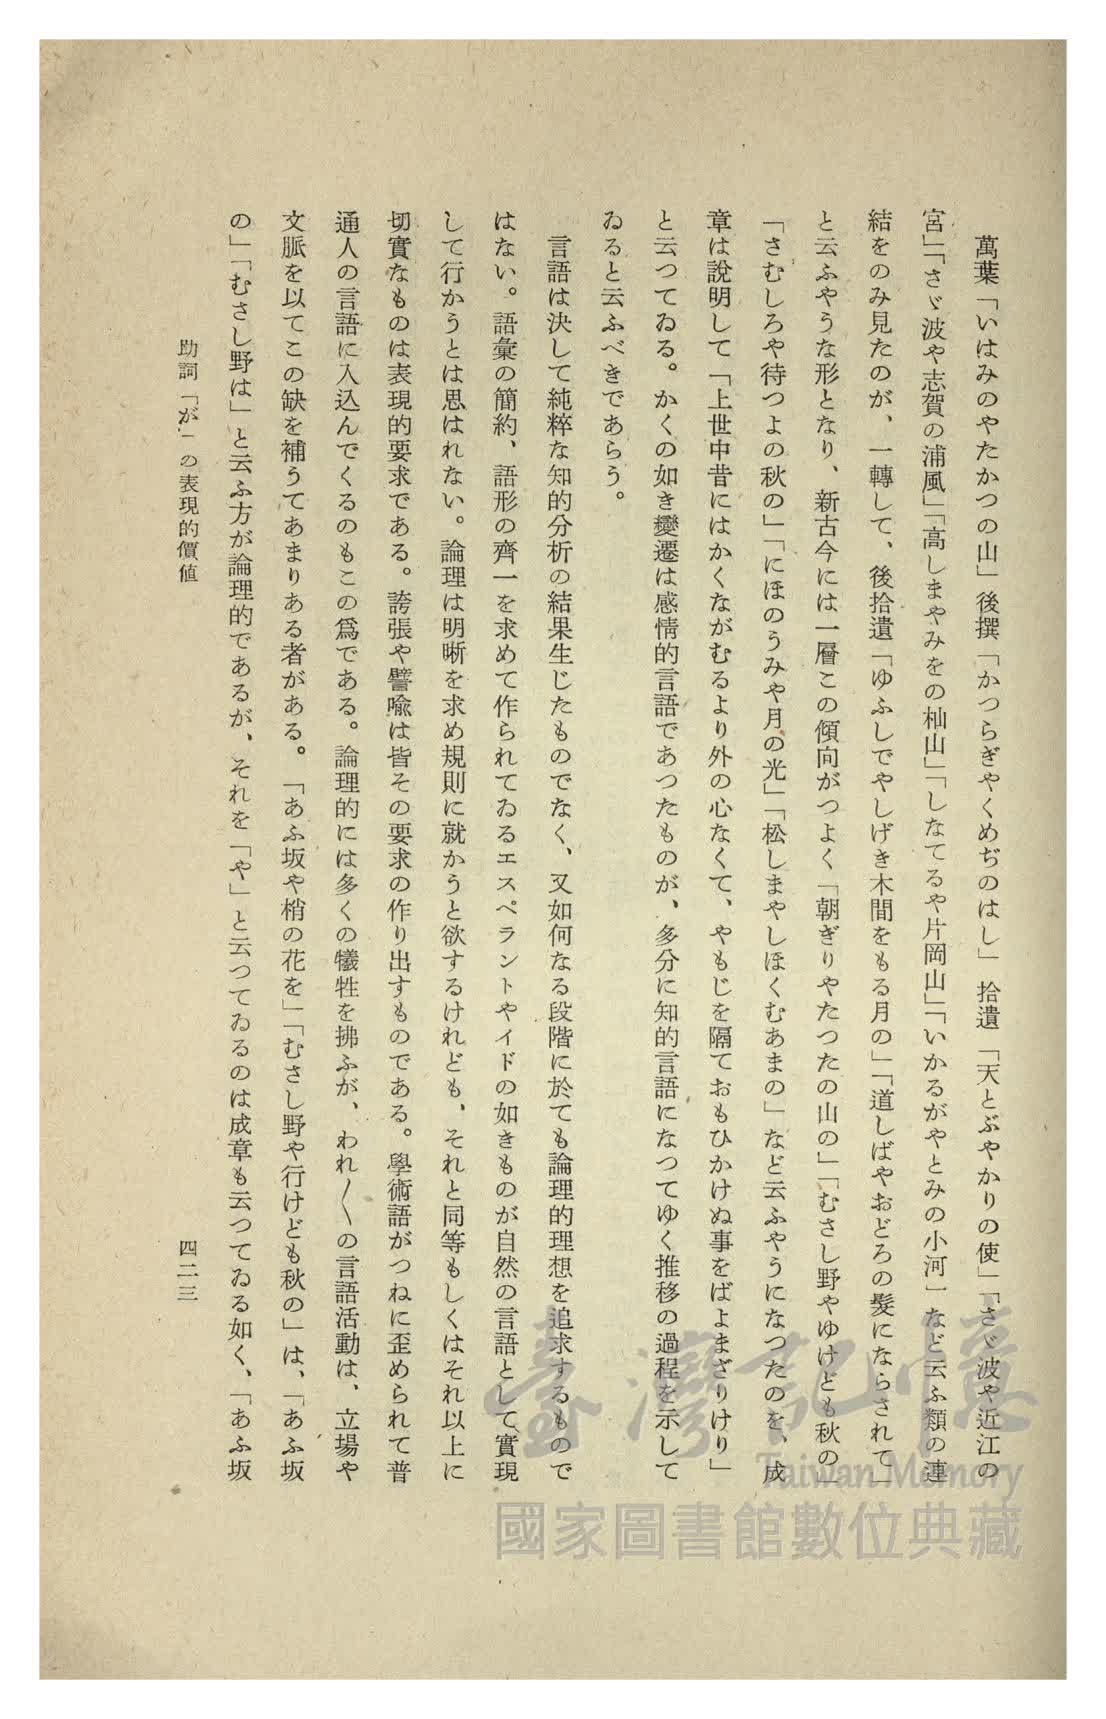 萬葉「いはみのやたかつの山」後撰「かつらぎやくめぢのはし」 拾遺「天とぶやかりの使」「さゞ波や近江の
宮」「さゞ波や志賀の浦風」「高しまやみをの杣山」「しなてるや片岡山」「いかるがやとみの小河」など云ふ類の連
結をのみ見たのが、一轉して、後拾遺「ゆふしでやしげき木間をもる月の」「道しばやおどろの髮にならされて」
と云ふやうな形となり、新古今には一層この傾向がつよく「朝ぎりやたつたの山の」「むさし野やゆけども秋の」
「さむしろや待つよの秋の」「にほのうみや月の光」「松しまやしほくむあまの」など云ふやうになつたのを、成
章は說明して「上世中昔にはかくながむるより外の心なくて、やもじを隔ておもひかけぬ事をばよまざりけり」
と云つてゐる。かくの如き變遷は感情的言語であつたものが、多分に知的言語になつてゆく推移の過程を示して
ゐると云ふべきであらう。
言語は決して純粹な知的分析の結果生じたものでなく、又如何なる段階に於ても論理的理想を追求するもので
はない。語彙の簡約、語形の齊一を求めて作られてゐるエスペラントやイドの如きものが自然の言語として實現
して行かうとは思はれない。論理は明晰を求め規則に就かうと欲するけれども、それと同等もしくはそれ以上に
切實なものは表現的要求である。誇張や譬喩は皆その要求の作り出すものである。學術語がつねに歪められて普
通人の言語に入込んでくるのもこの爲である。論理的には多くの犧牲を拂ふが、われ〳〵の言語活動は、立場や
文脈を以てこの缺を補うてあまりある者がある。「あふ坂や梢の花を」「むさし野や行けども秋の」は、「あふ坂
の」「むさし野は」と云ふ方が論理的であるが、それを「や」と云つてゐるのは成章も云つてゐる如く、「あふ坂
助詞「が」の表現的價値
四二三
臺灣記憶
Taiwan Memory
國家圖書館數位典藏